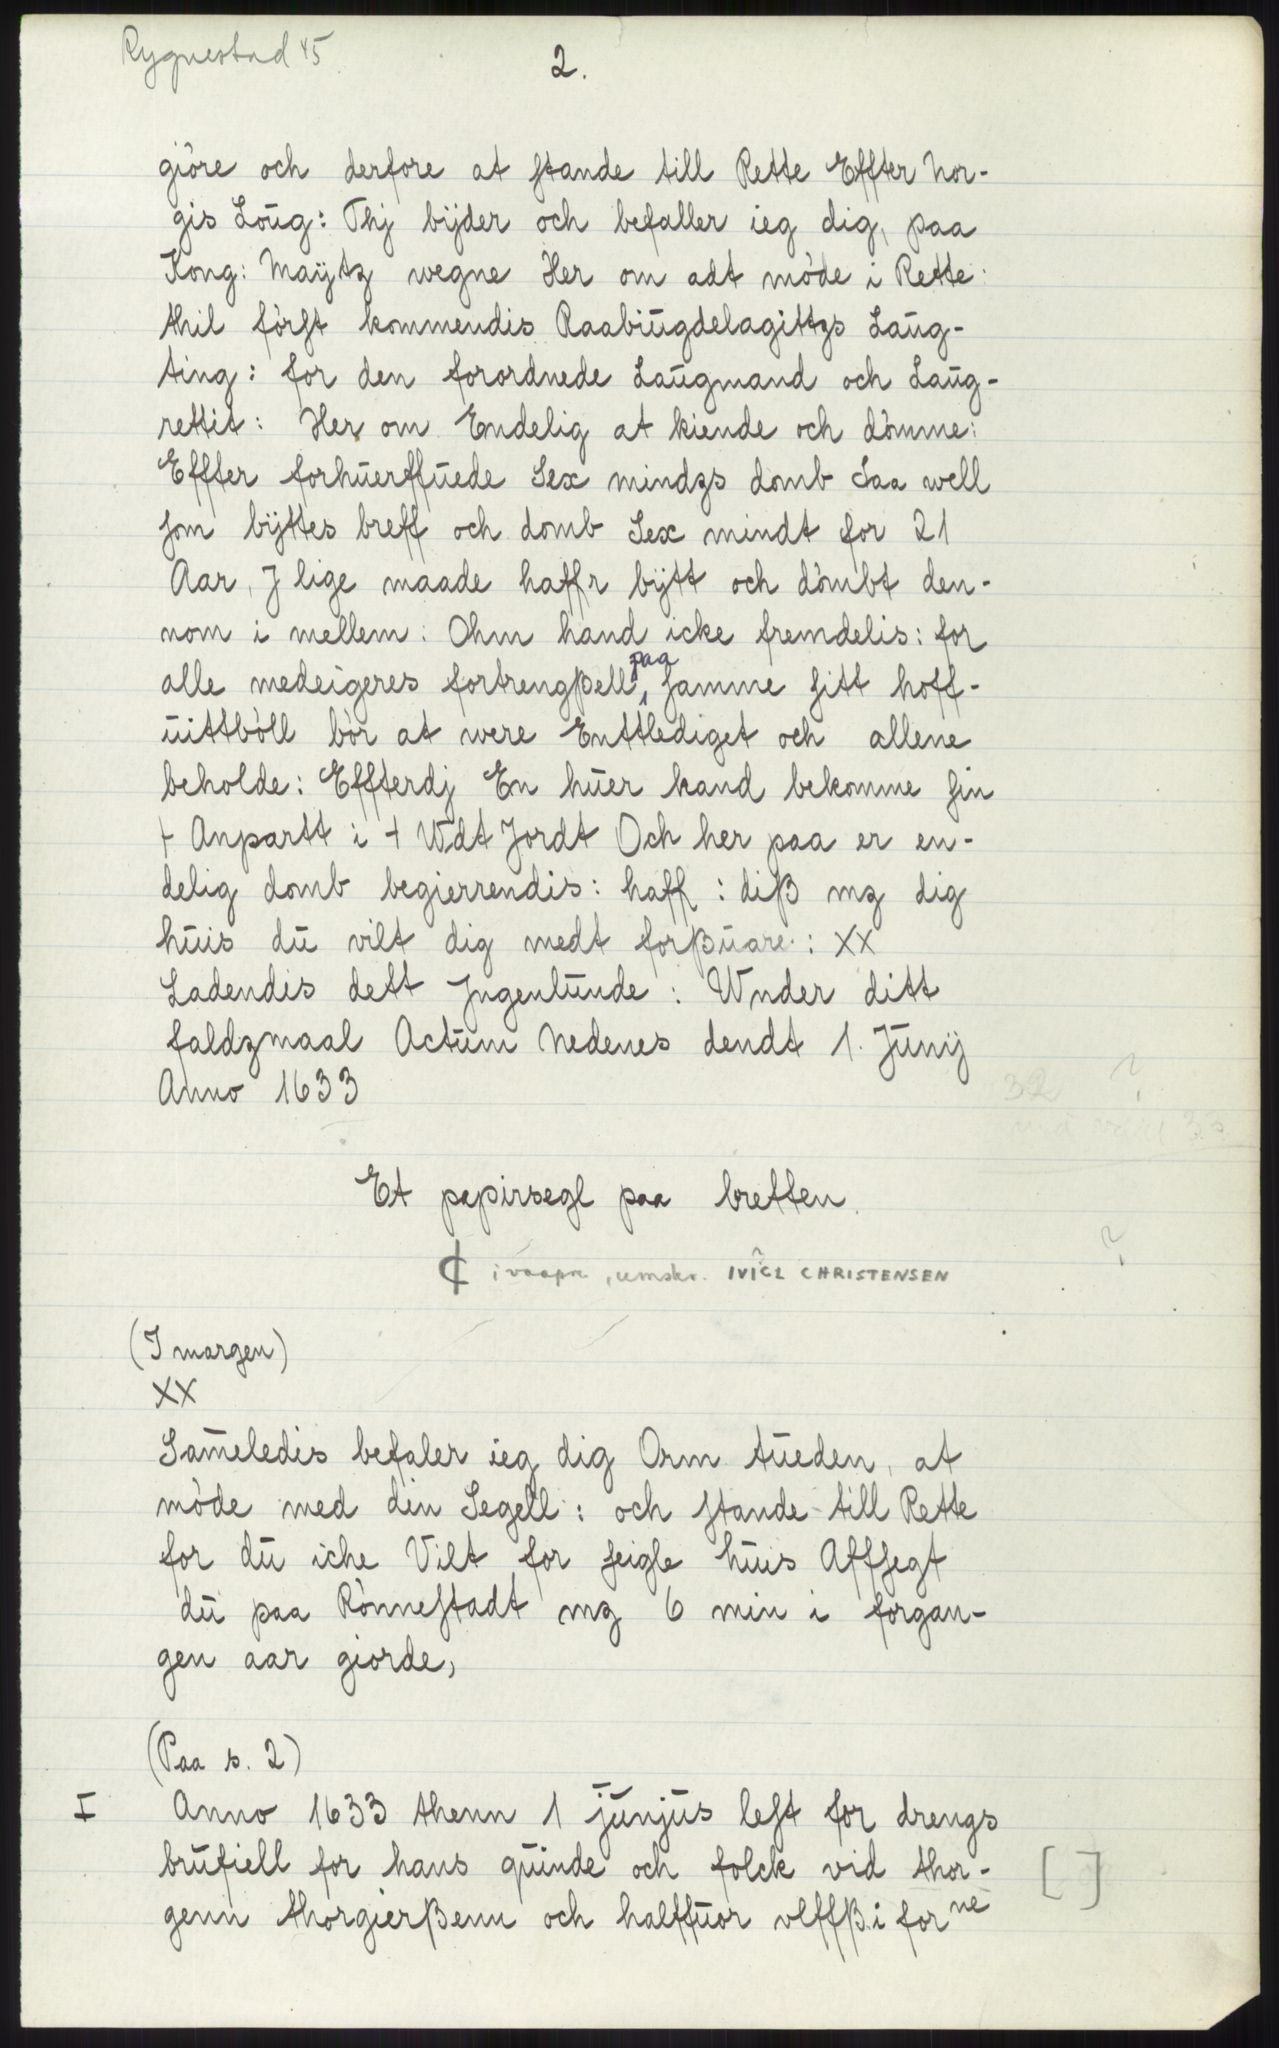 Rygnestad 45
2.
giöre och derfore at stande till Rette Effter Nor-
gis Loug: Thj bijder och befaller ieg dig, paa
Kong: Maÿtz wegne Her om adt möde i Rette:
thil först kommendis Raabiugdelagittzs Laug-
ting: for den forordnede Laugmand och Laug-
rettit: Her om Endelig at kiende och dömme:
Effter forhuerffuede Sex mindzs domb Saa well
som bÿttes breff och domb Sex mindt for 21
Aar, J lige maade haffr bÿtt och dömbt den-
nom i mellem: Ohm hand icke fremdelis: for
alle medeigeres fortrengßell paa samme sitt hoff-
uittböll bör at were Enttlediget och allene
beholde: Effterdj En huer kand bekomme sin
+ Anpartt i + Wdt Jordt Och her paa er en-
delig domb begierrendis: haff: diß mz dig
huis du vilt dig medt forßuare: XX
Ladendis dett Jngenlunde: Wnder ditt
faldzmaal Actum Nedenes dendt 1. Junij
Anno 1633
32 ?
Et papirsegl paa bretten.
i vaapn, umskr. IVICL CHRISTENSEN ?
(I margen)
XX
Sameledis befaler ieg dig Orm tueden, at
möde med din Segell: och stande till Rette
for du iche Vilt for seigle huis Affsegt
du paa Rönnestadt mz 6 min i forgan-
gen aar giorde,
(Paa s. 2)
I Anno 1633 thenn 1 junjus lest for drengs
brufiell for hans quinde och folck vid thor- [ ]
genn thorgierßenn och halffuor vlffß i forne